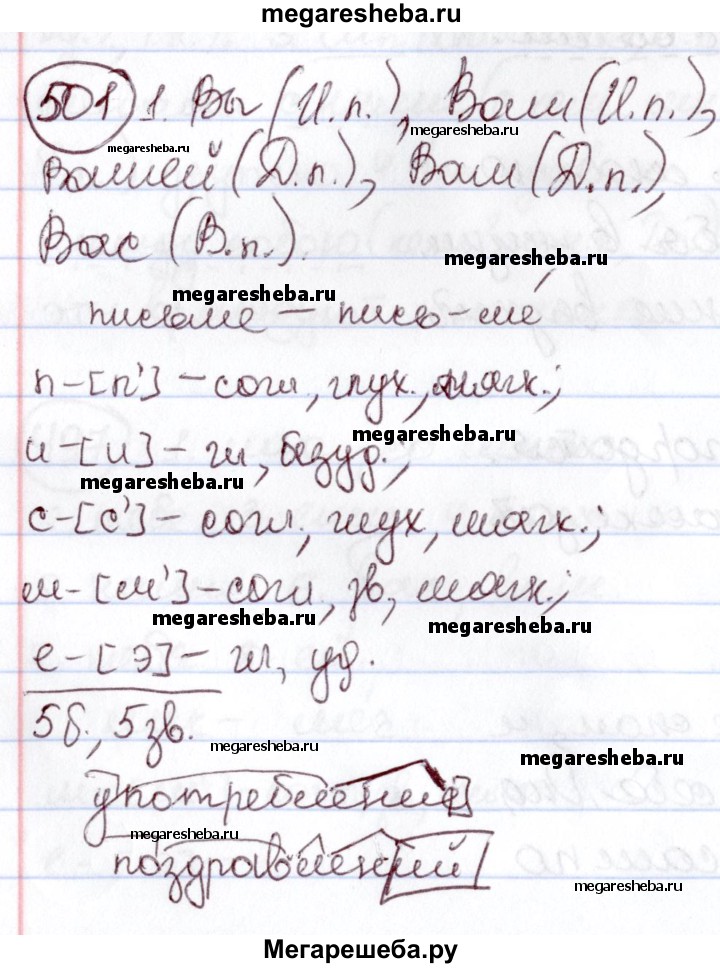 megaresheba.ru
501 1. Вы (И.п.), Вам (И.п.),
megaresheba.ru
megaresheba.ru
Вашей (Д.п.), Вам (Д.п.),
Вас (В.п.).
megaresheba.ru
megaresheba.ru
письме – пись-ме́
п-[п'] – согл, глух., мягк.;
megaresheba.ru
и-[и] – гл, безуд.;
megaresheba.ru
с-[с'] – согл, глух, мягк.;
м-[м'] – согл, зв, мягк.;
megaresheba.ru
megaresheba.ru
е-[э] – гл, уд.
5б., 5 зв.
megaresheba.ru
megaresheba.ru
употребление
megaresheba.ru
поздравлений
megaresheba.ru
Мегарешеба.ру